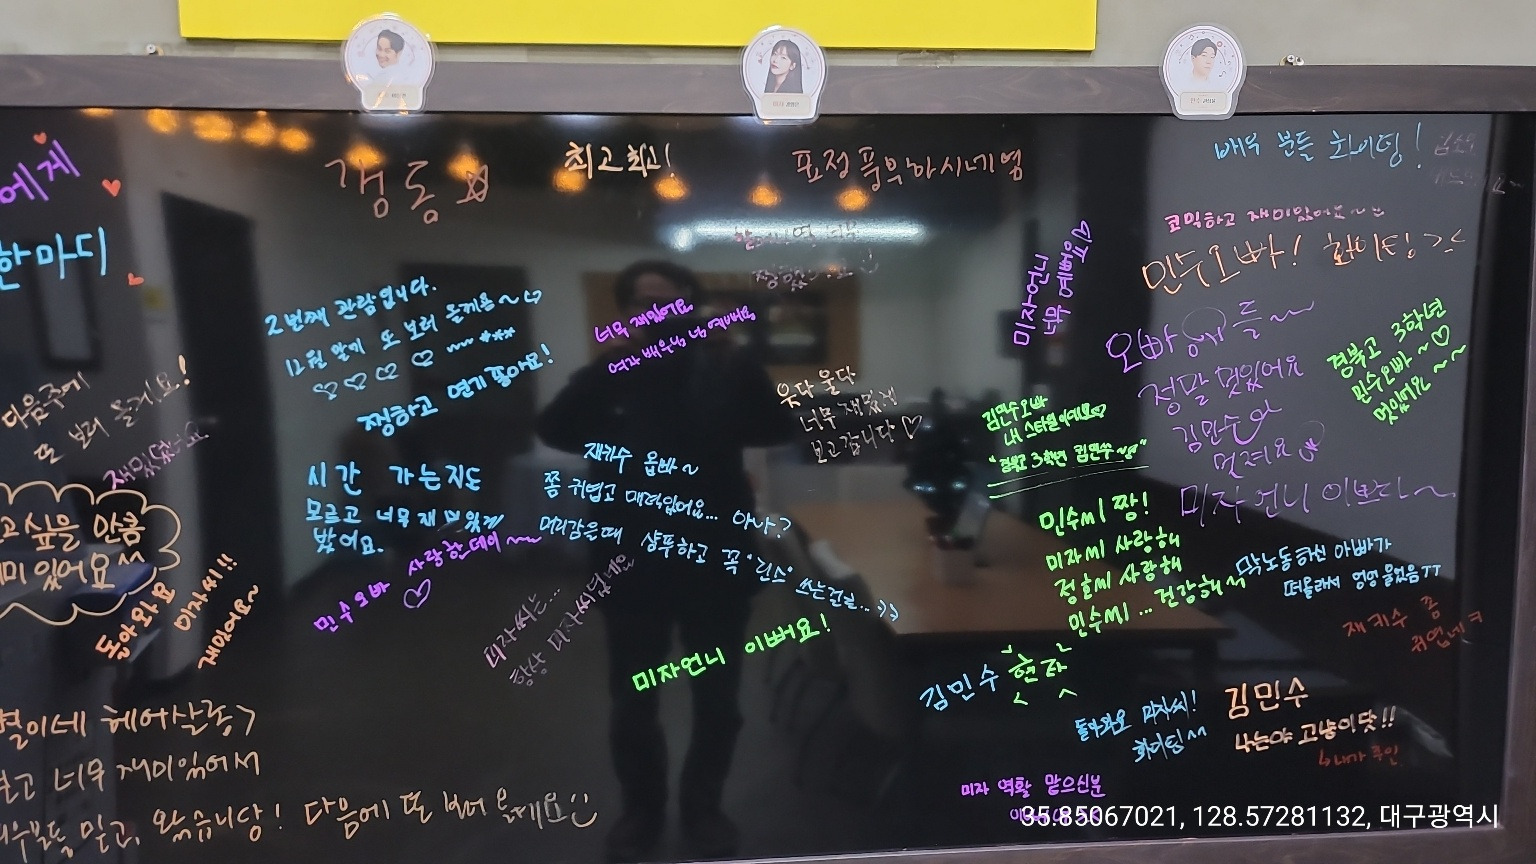 에게
한마디
갱동
최고 최고!
표정 풍부하시네염
배우 분들 화이팅!
2번째 관람입니다.
12월 말에 또 보러 올게용~
찡하고 연기 좋아요!
너무 재밌어요
여자 배우님 넘 예뻐용
미자언니
너무 예뻐요♡
코믹하고 재미있어요~
민수오빠! 화이팅
오빠 들~
정말 멋있어요
김민수
멋져요
미자언니 이쁘다~
경북고 3학년
민수오빠~♡
멋있어요~~
다음주에
또 보러 올게요!
재밌었어요
고 싶을 만큼
미있어요^^
돌아와요
미자씨!!
재밌어요~
시간 가는지도
모르고 너무 재밌있게
봤어요.
민수오빠 사랑한데이~
♡
재키수 옵빠~
쫌 귀엽고 매력있어요... 아나?
머리감을때 샴푸하고 꼭 "린스" 쓰는건...
미자씨는...
항상 미자씨였네요
미자언니 이뻐요!
웃다 울다
너무 재밌게
보고 갑니다♡
김민수오빠
내 스타일이에요♡
"경북고 3학년 김민수~"
민수씨 짱!
미자씨 사랑해
정호씨 사랑해
민수씨... 건강해
막노동하신 아빠가
떠올라서 엉엉 울었음ㅠㅠ
재키수 쫌
귀엽네ㅋ
김민수 현타
돌아와요 미자씨!
화이팅^^
김민수
나는야 고냥이닷!!
↳내가 주인
별이네 헤어살롱7
보고 너무 재미있어서
믿고, 왔습니당! 다음에 또 보러 올게요
미자 역할 맡으신분
35.85067021, 128.57281132, 대구광역시